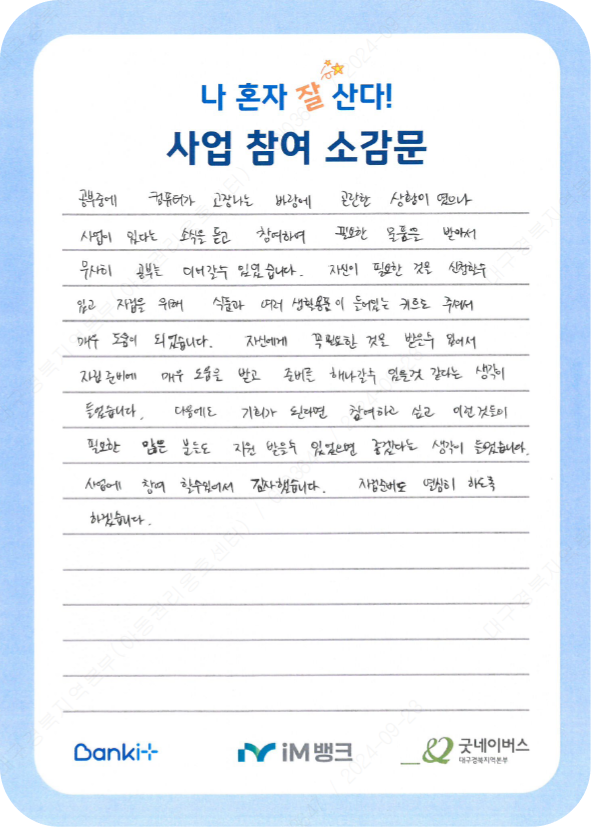 나 혼자 잘 산다!
사업 참여 소감문
공부중에 컴퓨터가 고장나는 바람에 곤란한 상황이 였으나
사업이 있다는 소식을 듣고 참여하여 필요한 물품을 받아서
무사히 공부는 이어갈수 있었습니다. 자신이 필요한 것을 신청할수
있고 자립을 위해 식물과 여러 생활용품이 들어있는 키트도 주셔서
매우 도움이 되었습니다. 자신에게 꼭필요한 것을 받을수 있어서
자립준비에 매우 도움을 받고 준비를 해나갈수 있을것 같다는 생각이
들었습니다. 다음에도 기회가 된다면 참여하고 싶고 이런것들이
필요한 많은 분들도 지원 받을수 있었으면 좋겠다는 생각이 들었습니다.
사업에 참여 할수있어서 감사했습니다. 자립준비도 열심히 하도록
하겠습니다.
Banki+ iM뱅크 굿네이버스
대구경북지역본부
2024-09-23